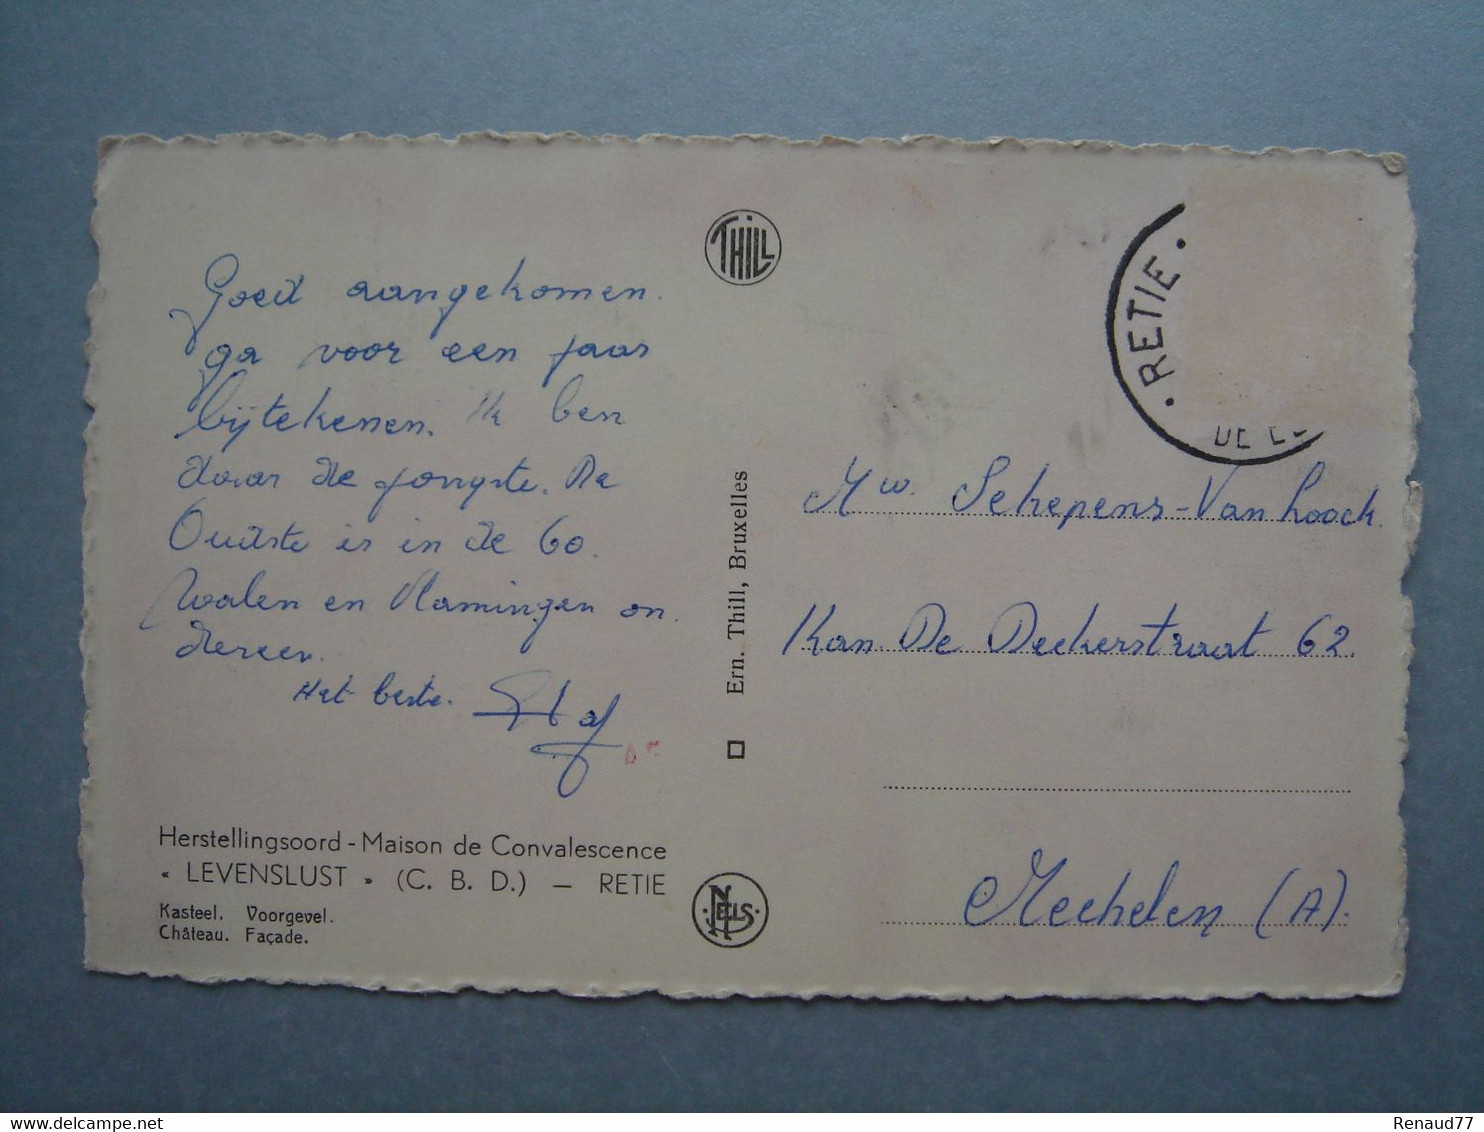 Goed aangekomen.
ga voor een jaar
bijtekenen. Ik ben
daar de jongste. De
Oudste is in de 60.
Walen en Vlamingen on
dereen.
Het beste. Staf
Herstellingsoord - Maison de Convalescence
« LEVENSLUST » (C. B. D.) — RETIE
Kasteel. Voorgevel.
Château. Façade.
THILL
Ern. Thill, Bruxelles
NELS
• RETIE •
Mw. Schepens-Van Loock
Kan. De Deckerstraat 62.
Mechelen (A).
Renaud77